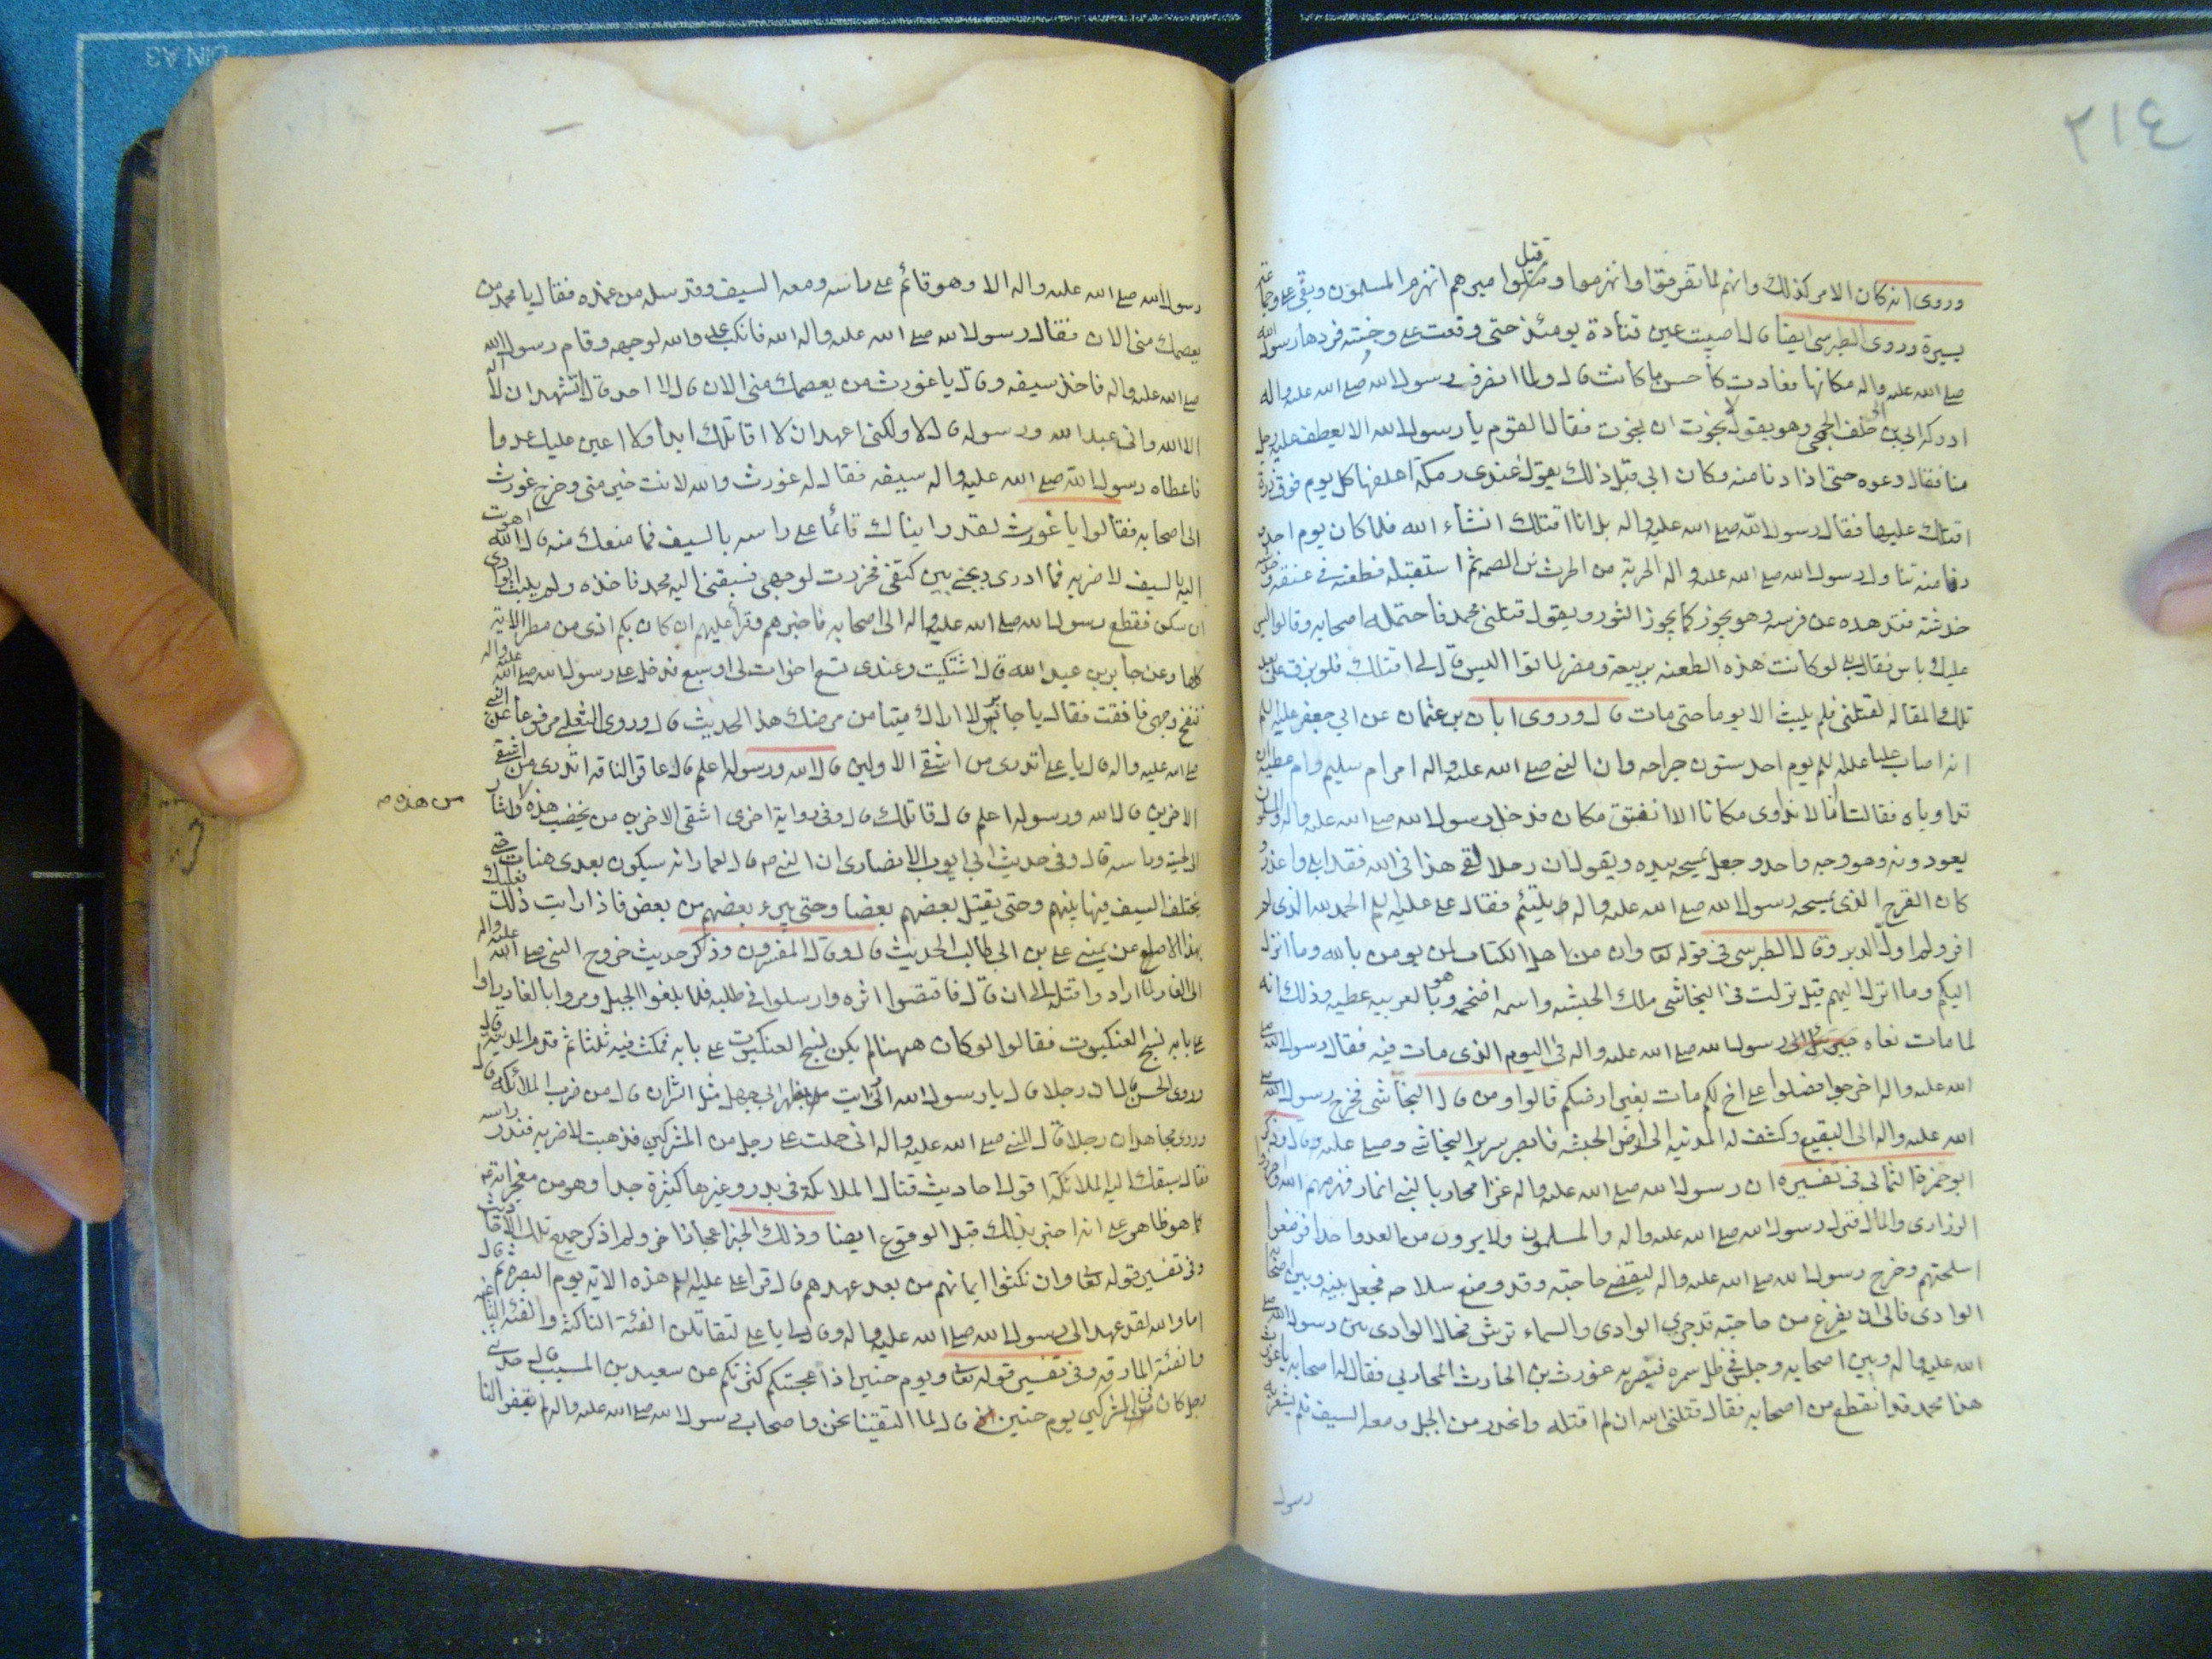 ٢١٤
وروى انه كان الامر كذلك وانهم لما تفرقوا وانهزموا وقتل اميرهم انهزم المسلمون وبقى على وجماعة
يسيرة وروى الطبرسى ايضا قال اصيبت عين قتادة يومئذ حتى وقعت على وجنته فردها رسول الله
صلى الله عليه واله مكانها فعادت كاحسن ما كانت قال ولما انصرف رسول الله صلى الله عليه واله
ادركه ابى بن خلف الجمحى وهو يقول لا نجوت ان نجوت فقال القوم يا رسول الله الا يعطف عليه رجل
منا فقال دعوه حتى اذا دنا منه وكان ابى قبل ذلك يقول عندى رمكة اعلفها كل يوم فرق ذرة
اقتلك عليها فقال رسول الله صلى الله عليه واله بل انا اقتلك انشاء الله فلما كان يوم احد
دنا منه تناول رسول الله صلى الله عليه واله الحربة من الحرث بن الصمة ثم استقبله فطعنه فى عنقه
خدشة فتدهده عن فرسه وهو يخور كما يخور الثور ويقول قتلنى محمد فاحتمله اصحابه وقالوا ليس
عليك باس فقال بلى لو كانت هذه الطعنه بربيعة ومضر لماتوا اليس قال لى اقتلك فلو بزق على بعد
تلك المقاله لقتلنى فلم يلبث الا يوما حتى مات قال وروى ابان بن عثمان عن ابى جعفر عليه السلم
انه اصاب عليا عليه السلم يوم احد ستون جراحه وان النبى صلى الله عليه واله امر ام سليم وام عطيه ان
تداوياه فقالت انا لا نداوى مكانا الا انفتق مكان فدخل رسول الله صلى الله عليه واله والمسلمون
يعودونه وهو وجه واحد وجعل يمسحه بيده ويقول ان رجلا لقى هذا فى الله فقد ابلى واعذر
كان القرح الذى يمسحه رسول الله صلى الله عليه واله يلتئم فقال على عليه السلم الحمد لله الذى لم
افر ولم اول الدبر وقال الطبرسى فى قوله تعالى وان من اهل الكتاب لمن يومن بالله وما انزل
اليكم وما انزل اليهم قيل نزلت فى النجاشى ملك الحبشه واسمه اصحمه وهو بالعربيه عطيه وذلك انه
لما مات نعاه جبرئيل الى رسول الله صلى الله عليه واله فى اليوم الذى مات فيه فقال رسول الله صلى
الله عليه واله اخرجوا فصلوا على اخ لكم مات بغير ارضكم قالوا ومن قال النجاشى فخرج رسول الله صلى
الله عليه واله الى البقيع وكشف له المدنيه الى ارض الحبشه فابصر سرير النجاشى وصلى عليه قال وذكر
ابو حمزة الثمالى فى تفسيره ان رسول الله صلى الله عليه واله غزا محاربا بنى انمار فهزمهم الله
الذرارى والمال فنزل رسول الله صلى الله عليه واله والمسلمون ولا يرون من العدو احدا فوضعوا
اسلحتهم وخرج رسول الله صلى الله عليه واله ليقضى حاجته وقد وضع سلاحه فجعل بينه وبين اصحابه
الوادى فالى ان يفرغ من حاجته قد جرى الوادى والسماء ترش فحال الوادى بين رسول الله صلى
الله عليه واله وبين اصحابه وجلس فى ظل سمرة فبصر به غورث بن الحارث المحاربى فقال له اصحابه يا غورث
هذا محمد قد انقطع من اصحابه فقال قتلنى الله ان لم اقتله وانحدر من الجبل ومعه السيف فلم يشعر به
رسول
رسول الله صلى الله عليه واله الا وهو قائم على راسه ومعه السيف وقد سله من غمده فقال يا محمد من
يعصمك منى الان فقال رسول الله صلى الله عليه واله الله فانكب عدو الله لوجهه وقام رسول الله
صلى الله عليه واله فاخذ سيفه وقال يا غورث من يعصمك منى الان قال لا احد قال اتشهد ان لا اله
الا الله وانى عبد الله ورسوله قال لا ولكنى اعهد ان لا اقاتلك ابدا ولا اعين عليك عدوا
فاعطاه رسول الله صلى الله عليه واله سيفه فقال له غورث والله لانت خير منى وخرج غورث
الى اصحابه فقالوا يا غورث لقد رايناك قائما على راسه بالسيف فما منعك منه قال الله اهويت
اليه بالسيف لاضربه فما ادرى من زلخنى بين كتفى فخررت لوجهى فسبقنى اليه محمد فاخذه ولم يلبث الوادى
ان سكن فقطع رسول الله صلى الله عليه واله الى اصحابه فاخبرهم وقرأ عليهم ان كان بكم اذى من مطر الاية
كلها وعن جابر بن عبد الله قال اشتكيت وعندى تسع اخوات لى او سبع فدخل على رسول الله صلى الله عليه واله
فنفخ وجهى فافقت فقال يا جابر لا اراك ميتا من مرضك هذا الحديث قال وروى الثعلبى مرفوعا عن النبى
صلى الله عليه واله قال يا على اتدرى من اشقى الاولين قال الله ورسوله اعلم قال عاقر الناقه اتدرى من اشقى
الاخرين قال الله ورسوله اعلم قال قاتلك قال وفى رواية اخرى اشقى الاخرين من يخضب هذه واشار
من هذه
الى لحيته وراسه قال وفى حديث ابى ايوب الانصارى ان النبى ص قال لعمار انه سيكون بعدى هنات حتى
يختلف السيف فيما بينهم وحتى يقتل بعضهم بعضا وحتى يبرء بعضهم من بعض فاذا رايت ذلك فعليك
بهذا الاصلع عن يمينى على بن ابى طالب الحديث قال وقال المفسرون وذكر حديث خروج النبى صلى الله عليه واله
الى الغار لما ارادوا قتله الى ان قال فاقتصوا اثره وارسلوا فى طلبه فلما بلغوا الجبل ومروا بالغار راوا
على بابه نسج العنكبوت فقالوا لو كان ههنا لم يكن نسج العنكبوت على بابه فمكث فيه ثلثا ثم قدم المدينه قال
وروى الحسن قال ان رجلا قال يا رسول الله انى رايت بظهر ابى جهل مثل الشراك قال من ضرب الملائكه قال
وروى مجاهد ان رجلا قال للنبى صلى الله عليه واله انى حملت على رجل من المشركين فذهبت لاضربه فندر راسه
فقال سبقك اليه الملائكة اقول احاديث قتال الملائكة فى بدر وغيرها كثيرة جدا وهو من معجزاته ص
كما هو ظاهر على انه اخبر بذلك قبل الوقوع ايضا وذلك الخبر اعجاز اخر ولم اذكر جميع تلك الاحاديث
وفى تفسير قوله تعالى وان نكثوا ايمانهم من بعد عهدهم قال قرا على عليه السلم هذه الايه يوم البصره ثم قال
اما والله لقد عهد الى رسول الله صلى الله عليه واله وقال لى يا على لتقاتلن الفئة الناكثه والفئه الباغيه
والفئة المارقه وفى تفسير قوله تعالى ويوم حنين اذ اعجبتكم كثرتكم عن سعيد بن المسيب قال حدثنى
رجل كان من المشركين يوم حنين قال لما التقينا نحن واصحاب رسول الله صلى الله عليه واله لم يقفوا لنا